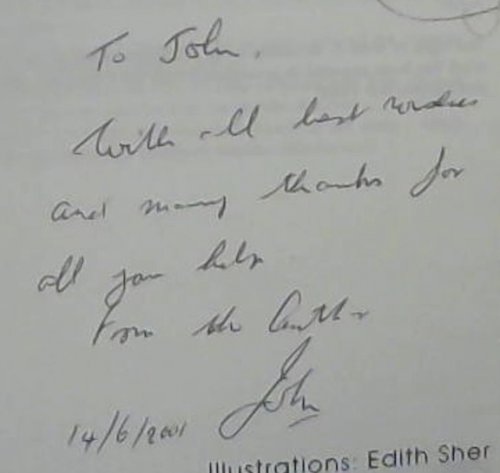 To John,
With all best wishes
and many thanks for
all your help
from the Author
John
14/6/2001
Illustrations: Edith Sher